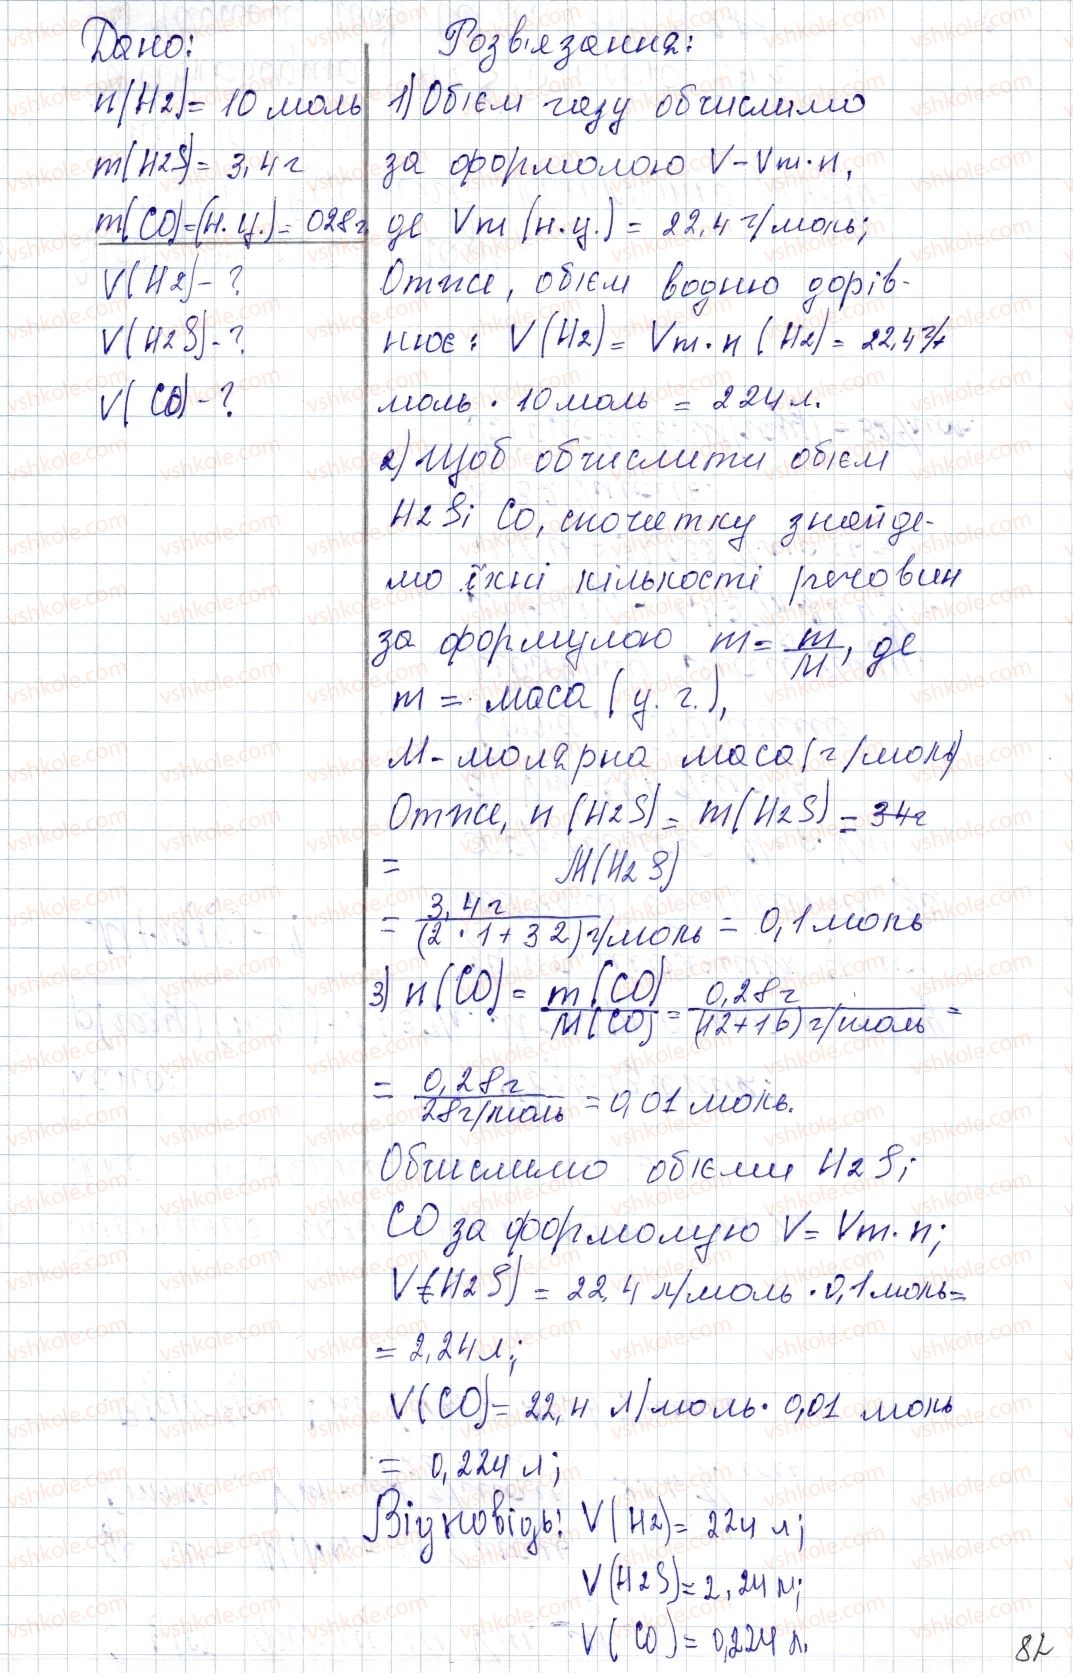 Дано:
n(H2)= 10 моль
m(H2S)= 3,4г
m(CO)=(н.у.)= 028г
V(H2)-?
V(H2S)-?
V(CO)-?
Розв'язання:
1) Обієм газу обчислимо
за формолою V-Vm·n,
де Vm (н.у.) = 22,4 г/моль;
Отже, обієм водню дорів-
нює: V(H2)= Vm·n (H2)= 22,4 г/
моль · 10 моль = 224 л.
2) Щоб обчислити обієм
H2S і CO, спочатку знайде-
мо їхні кількості речовин
за формулою m= m/M, де
m = маса (у. г.),
M-молярна маса (г/моль)
Отже, n (H2S)= m(H2S) = 34г
= M(H2S)
= 3,4г/(2·1+32)г/моль = 0,1 моль
3) n(CO) = m(CO)/M(CO) = 0,28г/(12+16)г/моль =
= 0,28г/28г/моль = 0,01 моль.
Обчислимо обієми H2S;
CO за формолую V= Vm·n;
V(H2S) = 22,4 л/моль · 0,1 моль=
= 2,24 л;
V(CO)= 22,4 л/моль · 0,01 моль
= 0,224 л;
Відповідь: V(H2)= 224 л;
V(H2S)=2,24 л;
V(CO)= 0,224 л.
82